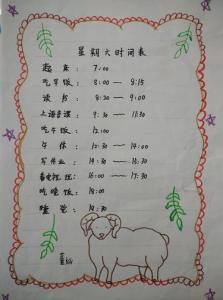 星期六时间表
起床： 7:00
吃早饭： 8:00 — 8:15
读书： 8:30 — 9:00
上语言课： 9:30 — 11:30
吃午饭： 12:00
午休： 12:30 — 14:00
写作业： 14:30 — 15:30
看电视： 16:00 — 17:30
吃晚饭： 18:00
睡觉： 20:30